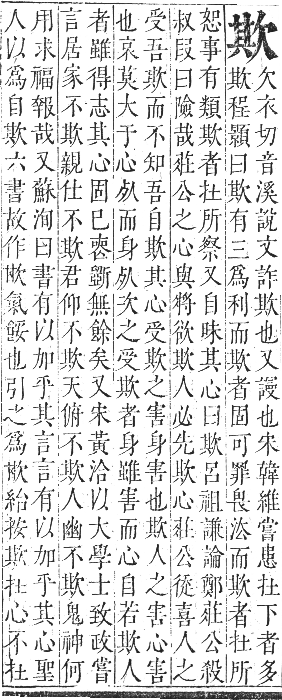 欺
欠衣切音溪說文詐欺也又謾也宋韓維嘗患在下者多
欺程顥曰欺有三為利而欺者固可罪畏法而欺者在所
恕事有類欺者在所察又自昧其心曰欺呂祖謙論鄭莊公殺
叔段曰險哉莊公之心與將欲欺人必先欺心莊公徒喜人之
受吾欺而不知吾自欺其心受欺之害身害也欺人之害心害
也哀莫大于心死而身死次之受欺者身雖害而心自若欺人
者雖得志其心固已喪斲無餘矣又宋黃洽以大學士致政嘗
言居家不欺親仕不欺君仰不欺天俯不欺人幽不欺鬼神何
用求福報哉又蘇洵曰書有以加乎其言言有以加乎其心聖
人以為自欺六書故作欺氣餒也引之為欺紿按欺在心不在